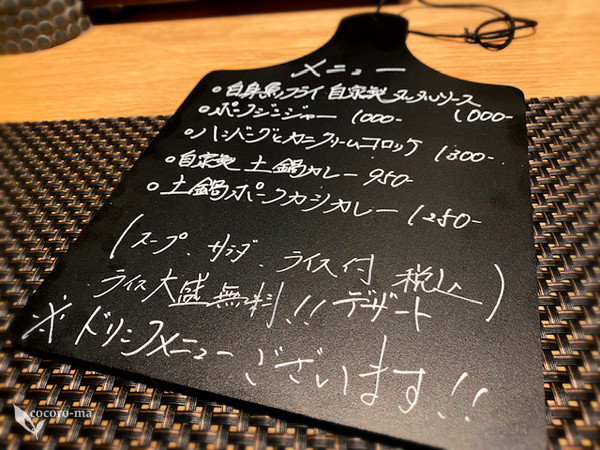 メニュー
○白身魚フライ 自家製タルタルソース 1,000-
○ポークジンジャー 1000-
○ハンバーグとカニクリームコロッケ 1300-
○自家製 土鍋カレー 950-
○土鍋ポークカツカレー 1250-
(スープ、サラダ、ライス付 税込)
ライス大盛無料!! デザート
※ドリンクメニューございます!!
cocoro-ma